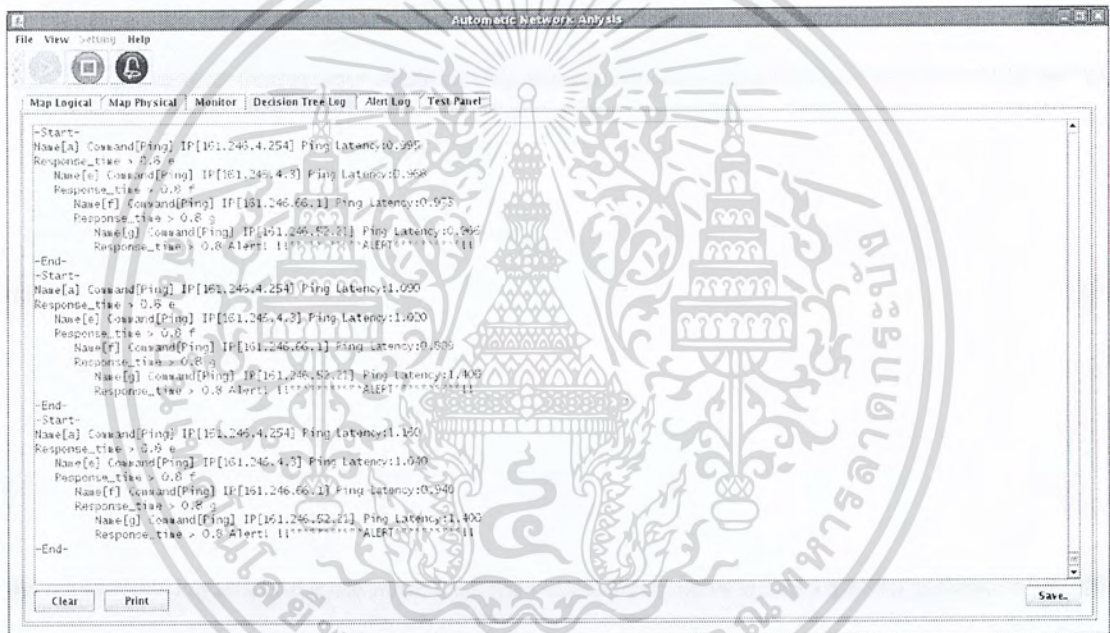 Automatic Network Anlysis
File View Setting Help
Map Logical Map Physical Monitor Decision Tree Log Alert Log Test Panel
-Start-
Name[a] Command[Ping] IP[161.246.4.254] Ping Latency:0.995
Response_time > 0.8 e
Name[e] Command[Ping] IP[161.246.4.3] Ping Latency:0.968
Response_time > 0.8 f
Name[f] Command[Ping] IP[161.246.66.1] Ping Latency:0.973
Response_time > 0.8 g
Name[g] Command[Ping] IP[161.246.52.21] Ping Latency:0.966
Response_time > 0.8 Alert! !!**********ALERT**********!!
-End-
-Start-
Name[a] Command[Ping] IP[161.246.4.254] Ping Latency:1.090
Response_time > 0.8 e
Name[e] Command[Ping] IP[161.246.4.3] Ping Latency:1.020
Response_time > 0.8 f
Name[f] Command[Ping] IP[161.246.66.1] Ping Latency:
Response_time > 0.8 g
Name[g] Command[Ping] IP[161.246.52.21] Ping Latency:1.400
Response_time > 0.8 Alert! !!**********ALERT**********!!
-End-
-Start-
Name[a] Command[Ping] IP[161.246.4.254] Ping Latency:1.160
Response_time > 0.8 e
Name[e] Command[Ping] IP[161.246.4.3] Ping Latency:1.040
Response_time > 0.8 f
Name[f] Command[Ping] IP[161.246.66.1] Ping Latency:0.940
Response_time > 0.8 g
Name[g] Command[Ping] IP[161.246.52.21] Ping Latency:1.400
Response_time > 0.8 Alert! !!**********ALERT**********!!
-End-
Clear Print Save..